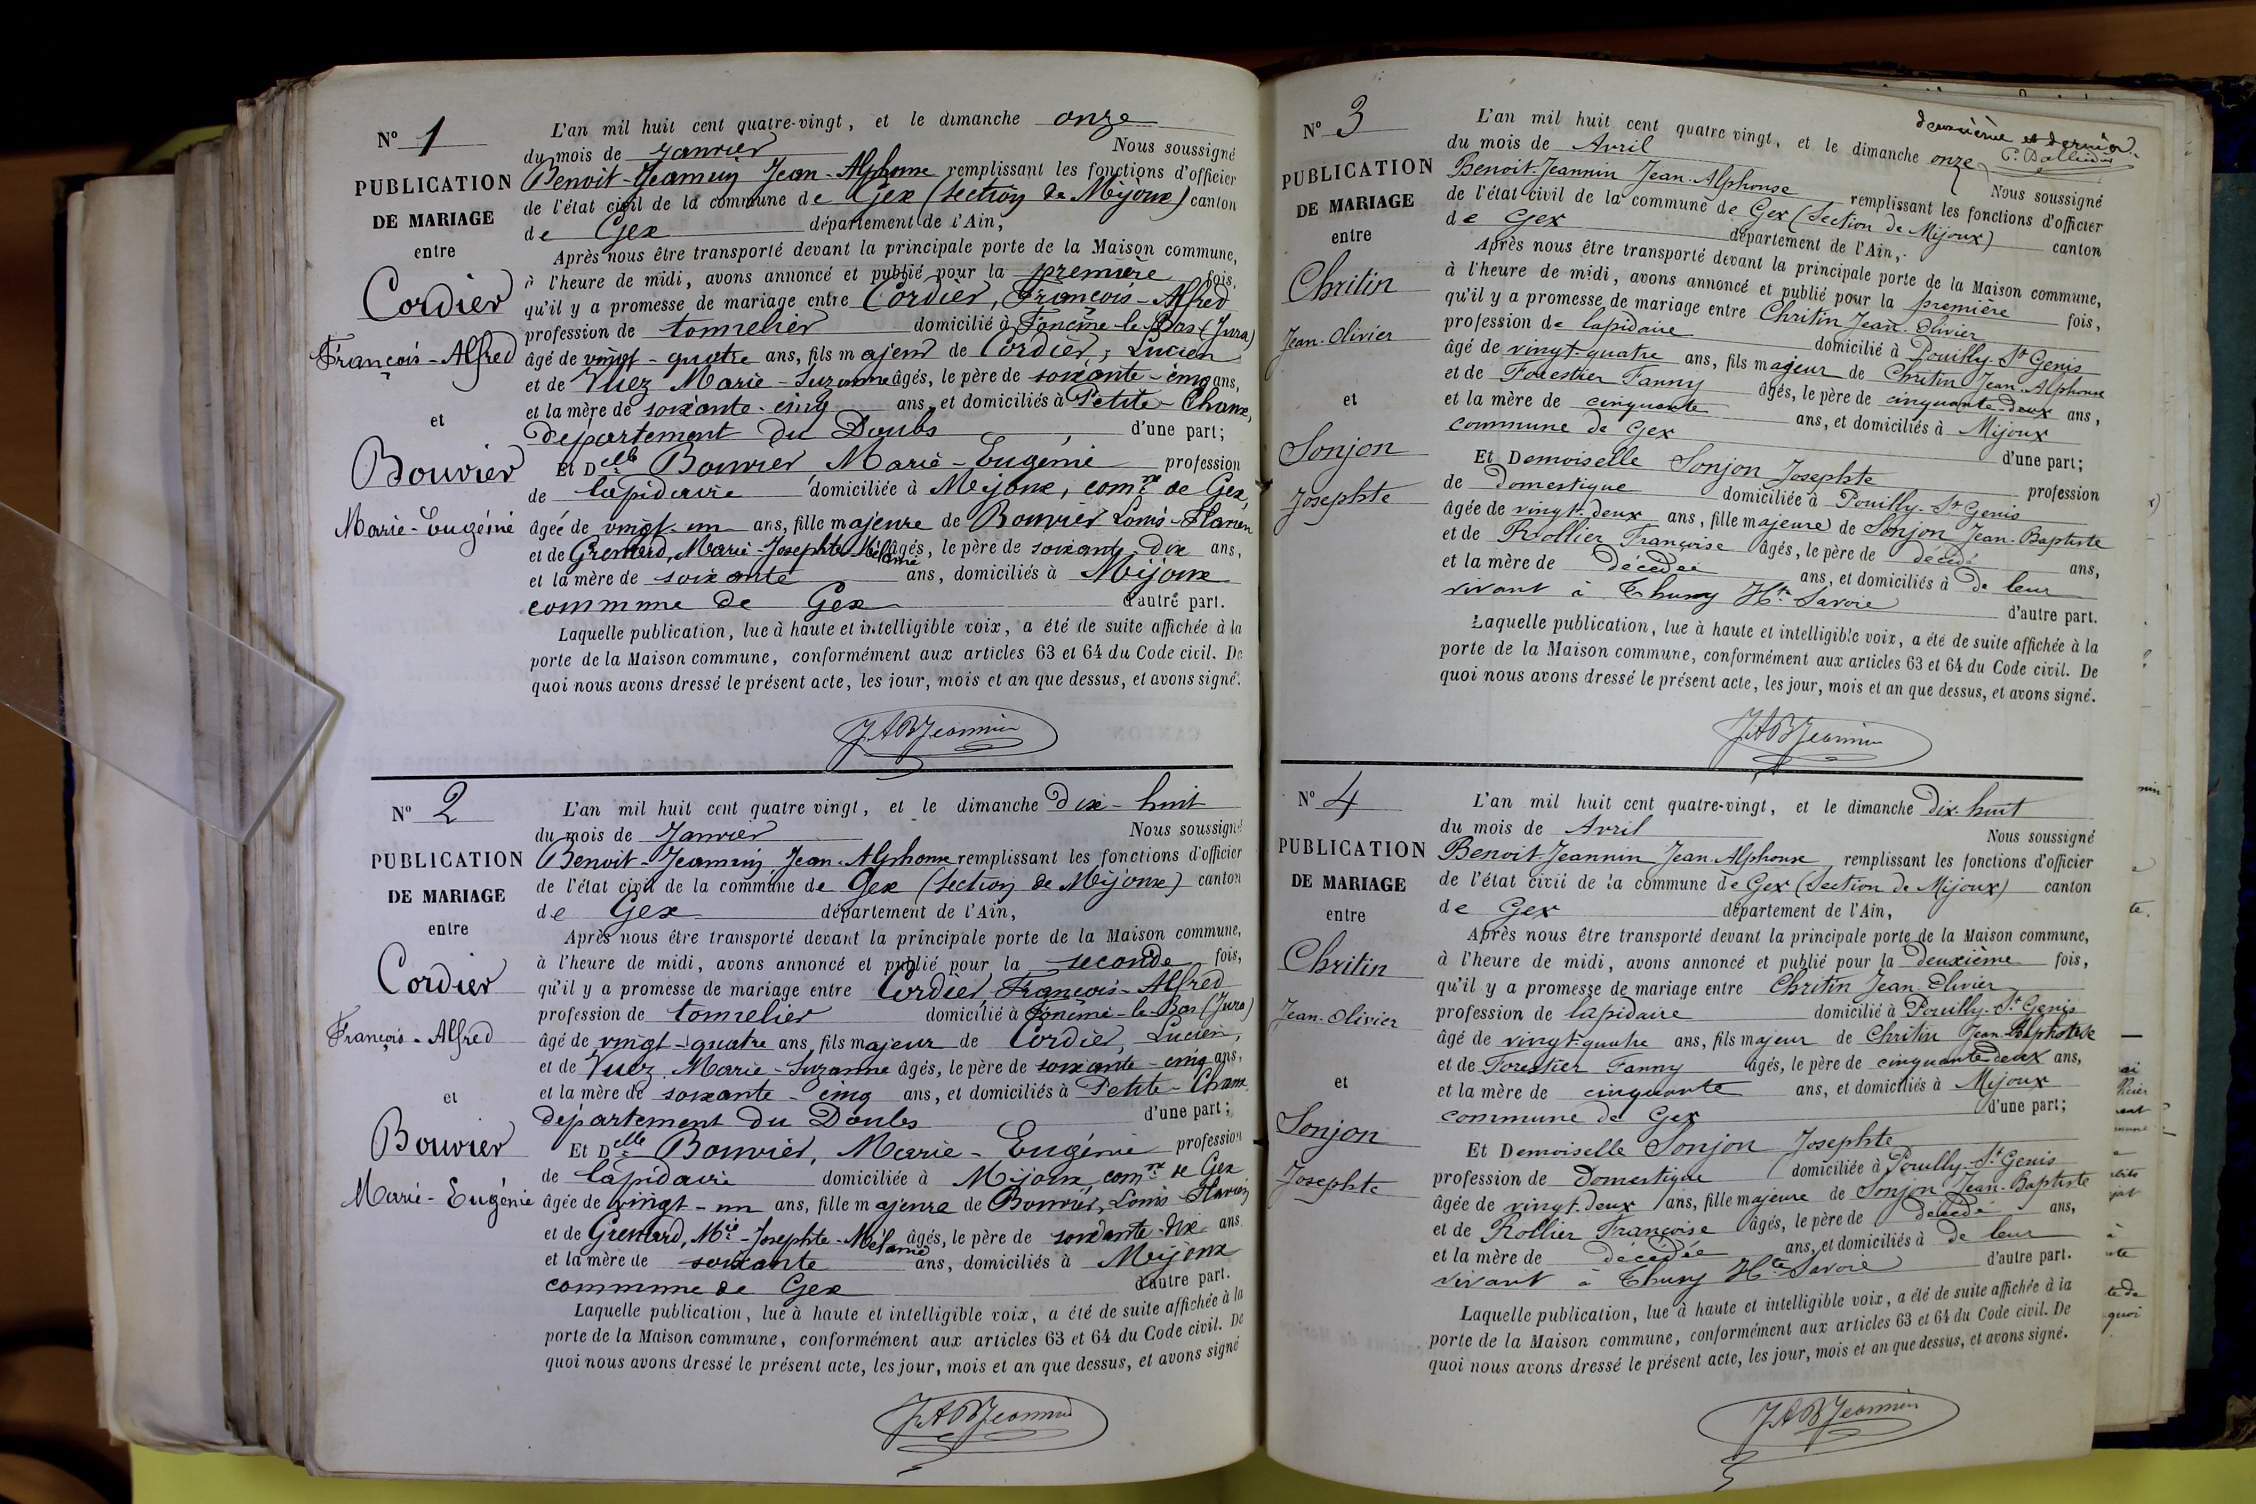 N° 1
PUBLICATION
DE MARIAGE
entre
Cordier
François-Alfred
et
Bouvier
Marie-Eugénie
L'an mil huit cent quatre-vingt, et le dimanche onze
du mois de Janvier Nous soussigné
Benoit-Jeannin Jean-Alphonse remplissant les fonctions d'officier
de l'état civil de la commune de Gex (section de Mijoux) canton
de Gex département de l'Ain,
Après nous être transporté devant la principale porte de la Maison commune,
à l'heure de midi, avons annoncé et publié pour la première fois,
qu'il y a promesse de mariage entre Cordier, François-Alfred
profession de tonnelier domicilié à Foncine-le-Bas (Jura)
âgé de vingt-quatre ans, fils majeur de Cordier, Lucien
et de Vuez Marie-Suzanne âgés, le père de soixante-cinq ans,
et la mère de soixante-cinq ans, et domiciliés à Petite-Chaux,
département du Doubs d'une part;
Et Delle Bouvier, Marie-Eugénie profession
de lapidaire domiciliée à Mijoux, comne de Gex,
âgée de vingt-un ans, fille majeure de Bouvier Louis-Flavien
et de Grenard, Marie-Josephte-Mélanie âgés, le père de soixante-dix ans,
et la mère de soixante ans, domiciliés à Mijoux
commune de Gex d'autre part.
Laquelle publication, lue à haute et intelligible voix, a été de suite affichée à la
porte de la Maison commune, conformément aux articles 63 et 64 du Code civil. De
quoi nous avons dressé le présent acte, les jour, mois et an que dessus, et avons signé.
JABJeannin
N° 2
PUBLICATION
DE MARIAGE
entre
Cordier
François-Alfred
et
Bouvier
Marie-Eugénie
L'an mil huit cent quatre vingt, et le dimanche dix-huit
du mois de Janvier Nous soussigné
Benoit-Jeannin, Jean-Alphonse remplissant les fonctions d'officier
de l'état civil de la commune de Gex (section de Mijoux) canton
de Gex département de l'Ain,
Après nous être transporté devant la principale porte de la Maison commune,
à l'heure de midi, avons annoncé et publié pour la seconde fois,
qu'il y a promesse de mariage entre Cordier, François-Alfred
profession de tonnelier domicilié à Foncine-le-Bas (Jura)
âgé de vingt-quatre ans, fils majeur de Cordier, Lucien,
et de Vuez Marie-Suzanne âgés, le père de soixante-cinq ans,
et la mère de soixante-cinq ans, et domiciliés à Petite-Chaux
département du Doubs d'une part;
Et Delle Bouvier, Marie-Eugénie profession
de lapidaire domiciliée à Mijoux comne de Gex
âgée de vingt-un ans, fille majeure de Bouvier, Louis-Flavien
et de Grenard, Mie-Josephte-Mélanie âgés, le père de soixante-dix ans
et la mère de soixante ans, domiciliés à Mijoux
commune de Gex d'autre part.
Laquelle publication, lue à haute et intelligible voix, a été de suite affichée à la
porte de la Maison commune, conformément aux articles 63 et 64 du Code civil. De
quoi nous avons dressé le présent acte, les jour, mois et an que dessus, et avons signé
JABJeannin
N° 3
PUBLICATION
DE MARIAGE
entre
Chritin
Jean-Olivier
et
Sonjon
Josephte
L'an mil huit cent quatre vingt, et le dimanche onze
du mois de Avril Nous soussigné
Benoit-Jeannin Jean-Alphonse remplissant les fonctions d'officier
de l'état civil de la commune de Gex (Section de Mijoux) canton
de Gex département de l'Ain,
Après nous être transporté devant la principale porte de la Maison commune,
à l'heure de midi, avons annoncé et publié pour la première fois,
qu'il y a promesse de mariage entre Chritin Jean-Olivier
profession de lapidaire domicilié à Pouilly-St Genis
âgé de vingt-quatre ans, fils majeur de Chritin Jean-Alphonse
et de Forestier Fanny âgés, le père de cinquante-deux ans,
et la mère de cinquante ans, et domiciliés à Mijoux
commune de Gex d'une part;
Et Demoiselle Sonjon Josephte profession
de domestique domiciliée à Pouilly-St Genis
âgée de vingt-deux ans, fille majeure de Sonjon Jean-Baptiste
et de Rollier Françoise âgés, le père de décédé ans,
et la mère de décédée ans, et domiciliés à de leur
vivant à Thusy Hte Savoie d'autre part.
Laquelle publication, lue à haute et intelligible voix, a été de suite affichée à la
porte de la Maison commune, conformément aux articles 63 et 64 du Code civil. De
quoi nous avons dressé le présent acte, les jour, mois et an que dessus, et avons signé.
JABJeannin
N° 4
PUBLICATION
DE MARIAGE
entre
Chritin
Jean-Olivier
et
Sonjon
Josephte
L'an mil huit cent quatre-vingt, et le dimanche dix-huit
du mois de Avril Nous soussigné
Benoit-Jeannin Jean-Alphonse remplissant les fonctions d'officier
de l'état civil de la commune de Gex (Section de Mijoux) canton
de Gex département de l'Ain,
Après nous être transporté devant la principale porte de la Maison commune,
à l'heure de midi, avons annoncé et publié pour la deuxième fois,
qu'il y a promesse de mariage entre Chritin Jean-Olivier
profession de lapidaire domicilié à Pouilly-St Genis
âgé de vingt-quatre ans, fils majeur de Chritin Jean-Alphonse
et de Forestier Fanny âgés, le père de cinquante deux ans,
et la mère de cinquante ans, et domiciliés à Mijoux
commune de Gex d'une part;
Et Demoiselle Sonjon Josephte
profession de Domestique domiciliée à Pouilly-St Genis
âgée de vingt-deux ans, fille majeure de Sonjon Jean-Baptiste
et de Rollier Françoise âgés, le père de décédé ans,
et la mère de décédée ans, et domiciliés à de leur
vivant à Thusy Hte Savoie d'autre part.
Laquelle publication, lue à haute et intelligible voix, a été de suite affichée à la
porte de la Maison commune, conformément aux articles 63 et 64 du Code civil. De
quoi nous avons dressé le présent acte, les jour, mois et an que dessus, et avons signé.
JABJeannin